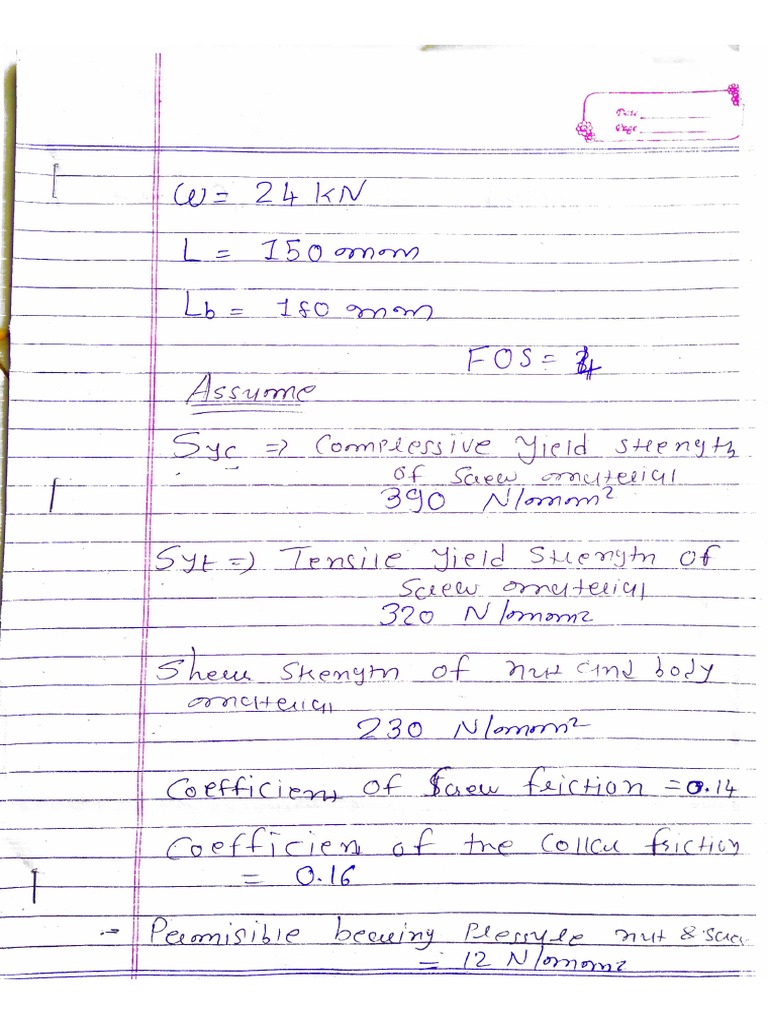 Date
Page
W = 24 KN
L = 150 mm
Lb = 180 mm
FOS = 4
Assume
Syc => Compressive Yield strength
of Screw material
390 N/mm²
Syt => Tensile Yield Strength of
Screw material
320 N/mm2
Shear strength of nut and body
material
230 N/mm²
Coefficient of Screw friction = 0.14
Coefficient of the Collar friction
= 0.16
- Permisible bearing pressure nut &
= 12 N/mm2